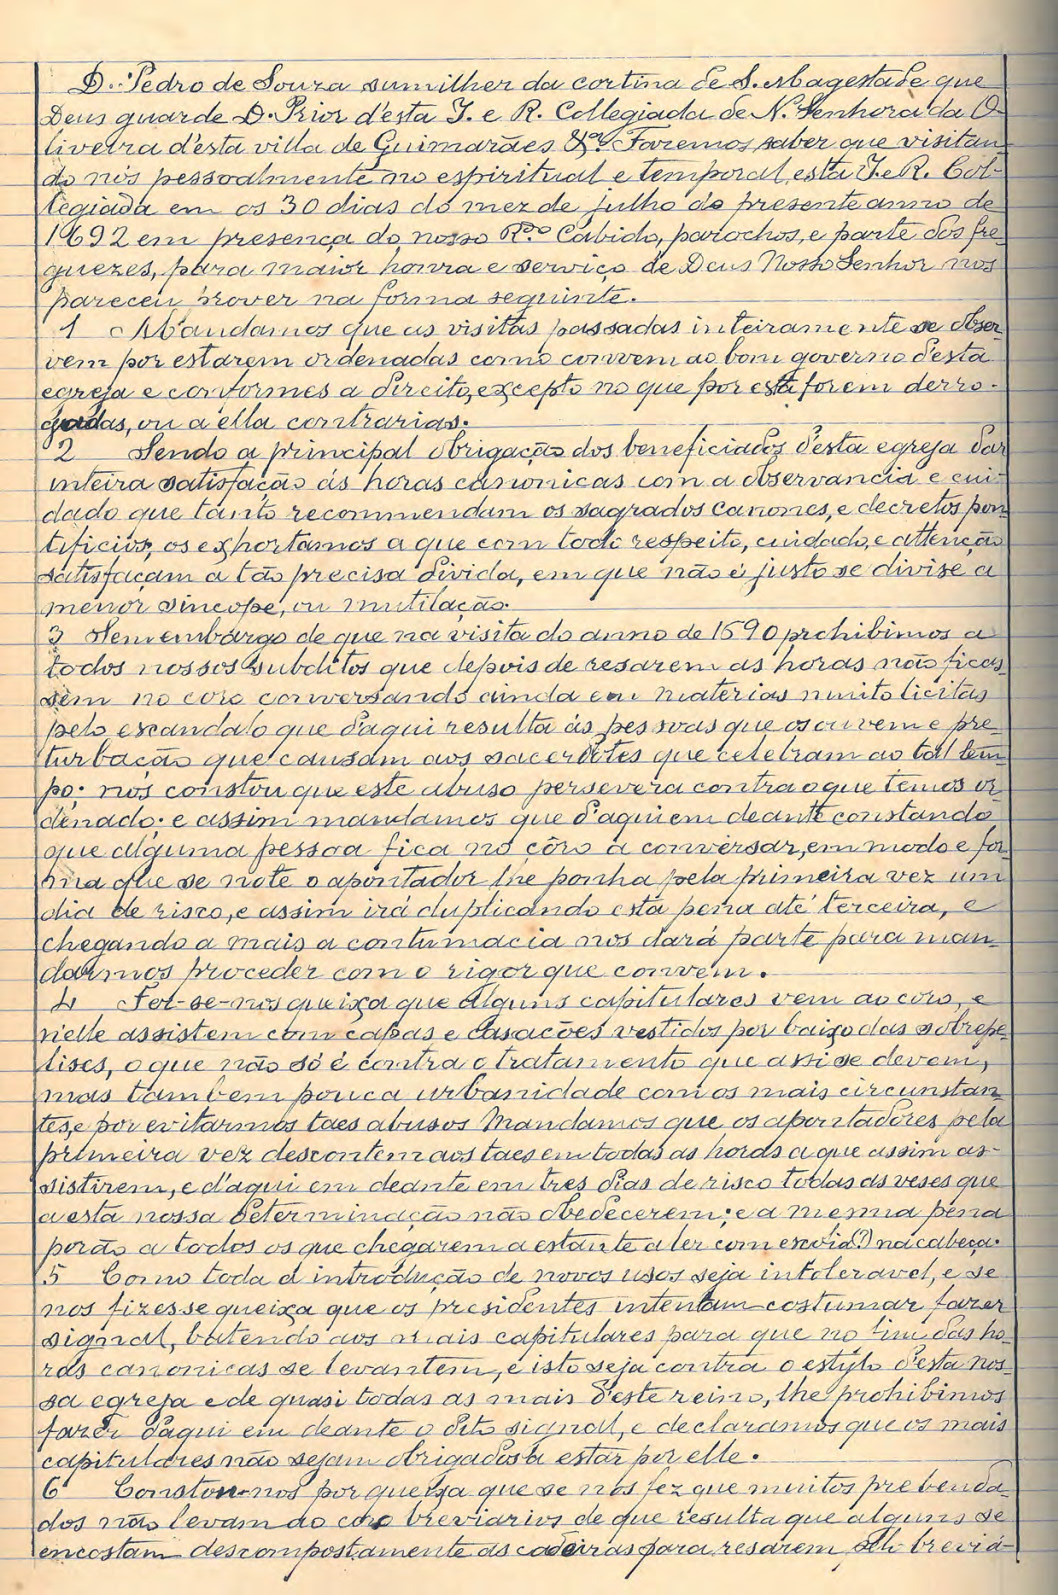 D. Pedro de Souza sumilher da cortina de S. Magestade que
Deus guarde D. Prior d'esta I. e R. Collegiada de N. Senhora da O-
liveira d'esta villa de Guimarães &ª. Fazemos saber que visitan
do nós pessoalmente no espiritual e temporal esta I. e R. Col-
legiada em os 30 dias do mez de julho do presente anno de
1692 em presença do nosso R.do Cabido, parochos, e parte dos fre-
guezes, para maior honra e serviço de Deus Nosso Senhor nos
pareceu prover na forma seguinte.
1 Mandamos que as visitas passadas inteiramente se obser
vem por estarem ordenadas como convem ao bom governo d'esta
egreja e conformes a direito, excepto no que por esta forem derro-
gadas, ou a ella contrarias.
2 Sendo a principal obrigação dos beneficiados d'esta egreja dar
inteira satisfação ás horas canonicas com a observancia e cui-
dado que tanto recommendam os sagrados canones, e decretos pon
tificios, os exhortamos a que com todo respeito, cuidado, e attenção
satisfaçam a tão precisa divida, em que não é justo se divise a
menor sincope, ou mutilação.
3 Sem embargo de que na visita do anno de 1690 prohibimos a
todos nossos subditos que depois de resarem as horas não ficas
sem no coro conversando ainda em materias muito licitas
pelo escandalo que d'aqui resulta ás pessoas que os ouvem e pre-
turbação que causam aos sacerdotes que celebram ao tal tem
po; nos constou que este abuso persevera contra o que temos or
denado; e assim mandamos que d'aqui em deante constando
que alguma pessoa fica no côro a conversar, em modo e for-
ma que se note o apontador lhe ponha pela primeira vez um
dia de risco, e assim irá duplicando esta pena até terceira, e
chegando a mais a contumacia nos dará parte para man-
darmos proceder com o rigor que convem.
4 Fez-se-nos queixa que alguns capitulares vem ao coro, e
n'elle assistem com capas e casacões vestidos por baixo das sobrepe-
lises, o que não só é contra o tratamento que a si se devem,
mas tambem pouca urbanidade com os mais circunstan
tes, e por evitarmos taes abusos Mandamos que os apontadores pela
primeira vez descontem aos taes em todas as horas a que assim as-
sistirem, e d'aqui em deante em tres dias de risco todas as veses que
a esta nossa determinação não obedecerem; e a mesma pena
porão a todos os que chegarem a estante a ler com escovia(?) na cabeça.
5 Como toda a introdução de novos usos seja intoleravel, e se
nos fizesse queixa que os presidentes intentam costumar fazer
signal, batendo aos mais capitulares para que no fim das ho-
ras canonicas se levantem, e isto seja contra o estylo d'esta nos-
sa egreja e de quasi todas as mais d'este reino, lhe prohibimos
fazer d'aqui em deante o dito signal, e declaramos que os mais
capitulares não sejam obrigados a estar por elle.
6 Constou-nos por queixa que se nos fez que muitos prebenda-
dos não levam ao coro breviarios de que resulta que alguns se
encostam descompostamente as cadeiras para resarem pelo breviá-